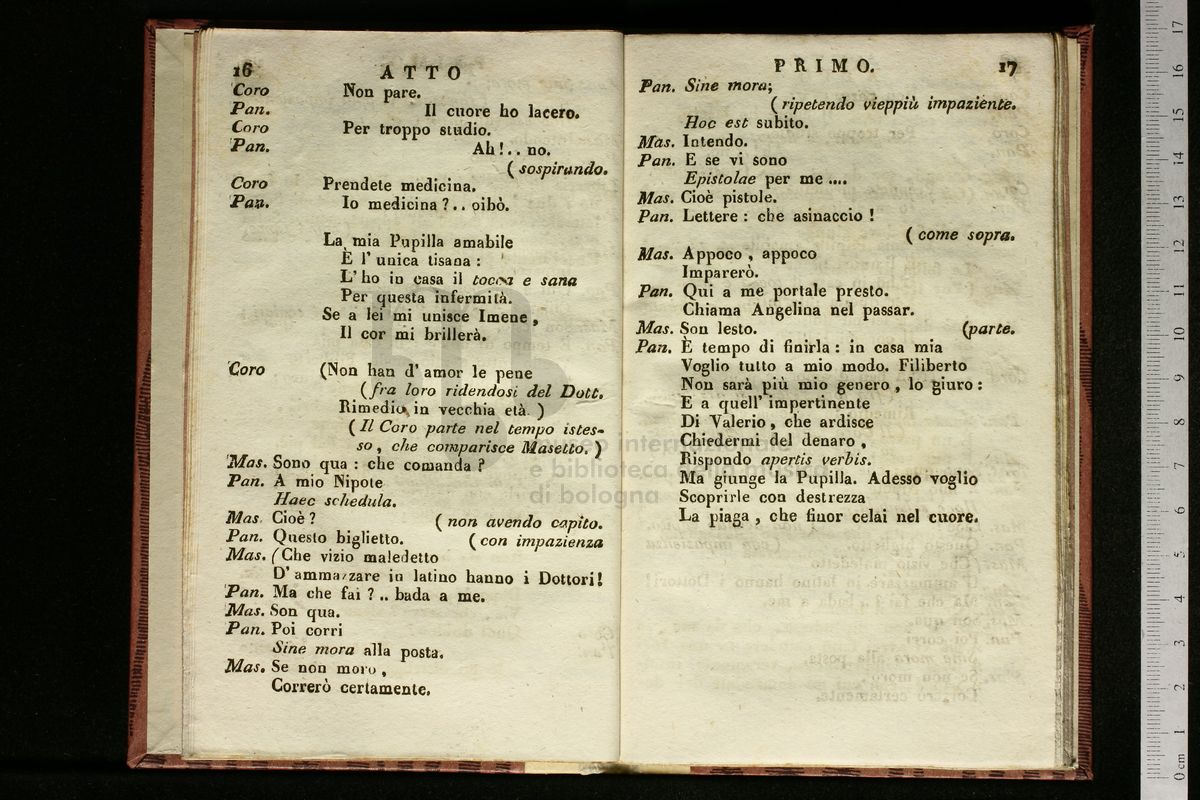 16 ATTO
Coro Non pare.
Pan. Il cuore ho lacero.
Coro Per troppo studio.
Pan. Ah!.. no.
(sospirando.
Coro Prendete medicina.
Pan. Io medicina?.. oibò.
La mia Pupilla amabile
È l' unica tisana:
L' ho in casa il tocca e sana
Per questa infermità.
Se a lei mi unisce Imene,
Il cor mi brillerà.
Coro (Non han d' amor le pene
(fra loro ridendosi del Dott.
Rimedio in vecchia età.)
(Il Coro parte nel tempo istes-
so, che comparisce Masetto.)
Mas. Sono qua: che comanda?
Pan. A mio Nipote
Haec schedula.
Mas. Cioè? (non avendo capito.
Pan. Questo biglietto. (con impazienza
Mas. (Che vizio maledetto
D' ammazzare in latino hanno i Dottori!
Pan. Ma che fai?.. bada a me.
Mas. Son qua.
Pan. Poi corri
Sine mora alla posta.
Mas. Se non moro,
Correrò certamente.
PRIMO. 17
Pan. Sine mora;
(ripetendo vieppiù impaziente.
Hoc est subito.
Mas. Intendo.
Pan. E se vi sono
Epistolae per me ....
Mas. Cioè pistole.
Pan. Lettere: che asinaccio!
(come sopra.
Mas. Appoco, appoco
Imparerò.
Pan. Qui a me portale presto.
Chiama Angelina nel passar.
Mas. Son lesto. (parte.
Pan. È tempo di finirla: in casa mia
Voglio tutto a mio modo. Filiberto
Non sarà più mio genero, lo giuro:
E a quell' impertinente
Di Valerio, che ardisce
Chiedermi del denaro,
Rispondo apertis verbis.
Ma giunge la Pupilla. Adesso voglio
Scoprirle con destrezza
La piaga, che finor celai nel cuore.
museo internazionale
e biblioteca della musica
di bologna
0 cm 1 2 3 4 5 6 7 8 9 10 11 12 13 14 15 16 17